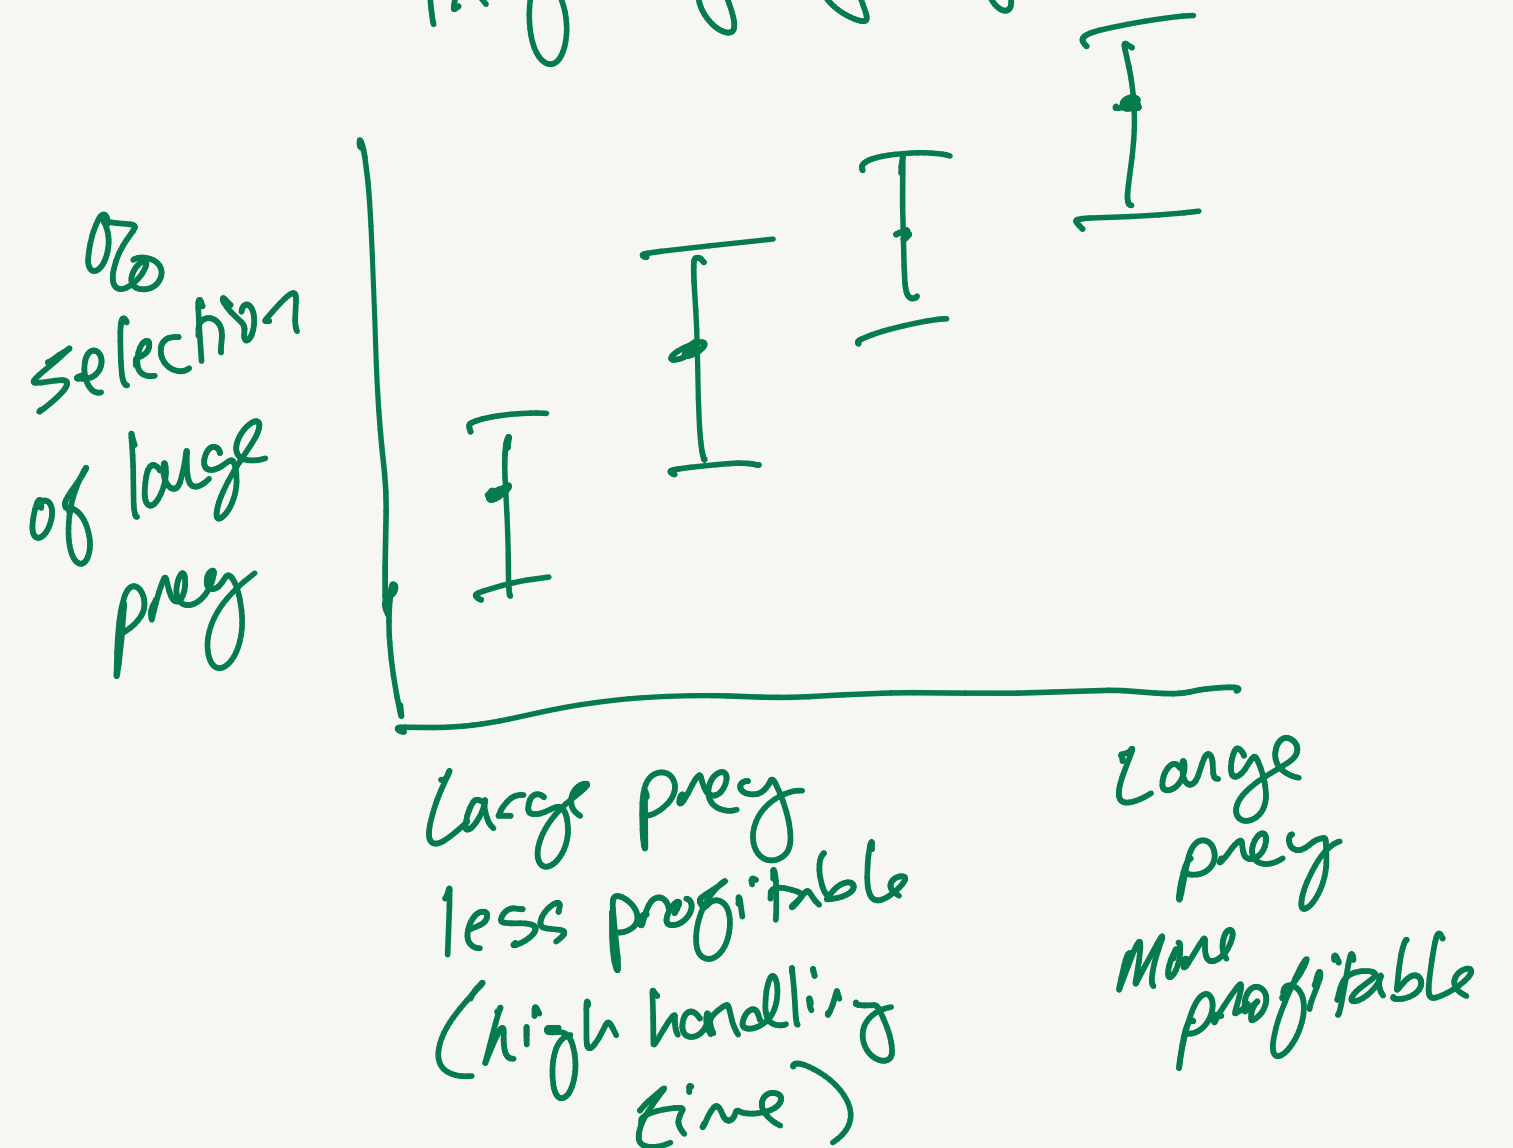 %
selection
of large
prey
Large prey
less profitable
(high handling
time)
Large
prey
More
profitable